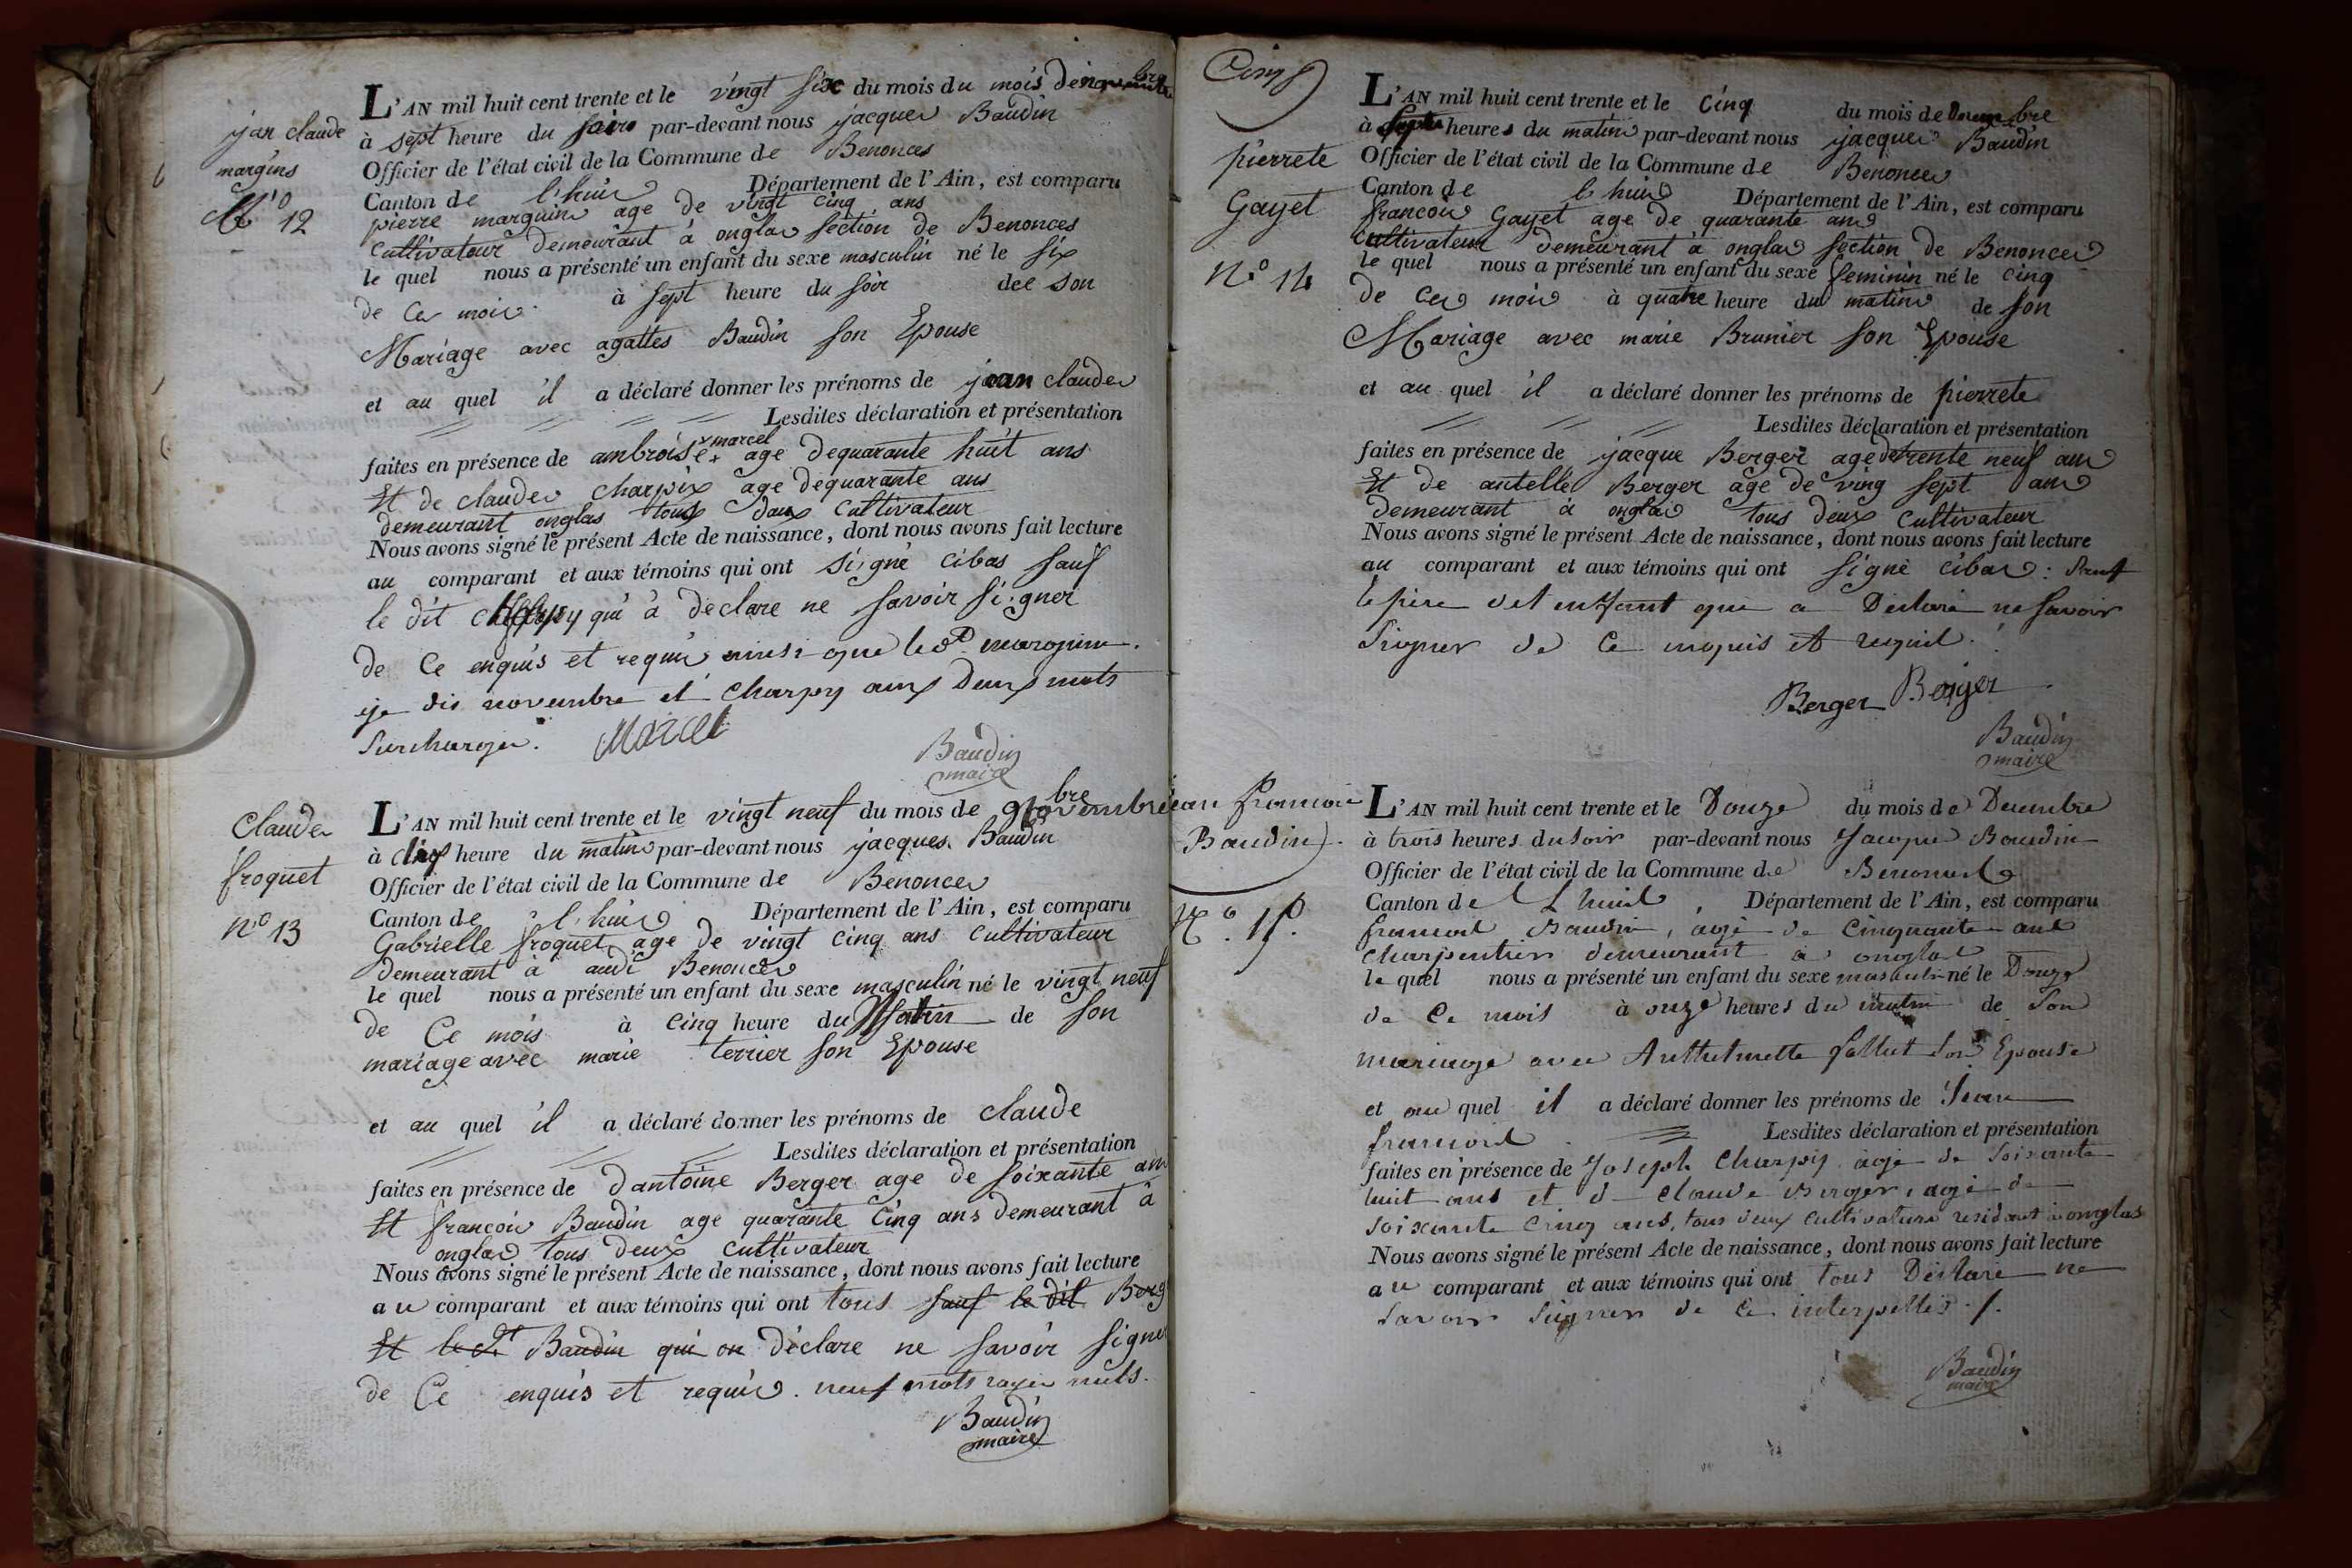 jan claude
margins
N.º 12
L'AN mil huit cent trente et le vingt six du mois du mois de novembre
à sept heure du soire par-devant nous jacques Baudin
Officier de l'état civil de la Commune de Benonces
Canton de l'huis Département de l'Ain, est comparu
pierre marguin age de vingt cinq ans
cultivateur demeurant à onglas section de Benonces
le quel nous a présenté un enfant du sexe masculin né le six
de Ces mois à sept heure du soir de son
Mariage avec agattes Baudin son Epouse
et au quel il a déclaré donner les prénoms de jean claude
Lesdites déclaration et présentation
faites en présence de ambroise marcel age de quarante huit ans
Et de claude charpix age de quarante ans
demeurant onglas tous deux cultivateur
Nous avons signé le présent Acte de naissance, dont nous avons fait lecture
au comparant et aux témoins qui ont signé cibas sauf
le dit charpy qui à declare ne savoir signer
de Ce enquis et requis ainsi que le dt. marguin.
je dis novembre et charpy aux deux mots
surchargés. Marcel
Baudin
maire
Claude
froquet
nº 13
L'AN mil huit cent trente et le vingt neuf du mois de novembre
à cinq heure du matin par-devant nous jacques Baudin
Officier de l'état civil de la Commune de Benonces
Canton de l'huis Département de l'Ain, est comparu
Gabrielle froquet age de vingt cinq ans cultivateur
demeurant à audi Benonces
le quel nous a présenté un enfant du sexe masculin né le vingt neuf
de Ce mois à cinq heure du Matin de son
mariage avec marie terrier son Epouse
et au quel il a déclaré donner les prénoms de claude
Lesdites déclaration et présentation
faites en présence de dantoine Berger age de soixante ans
Et francois Baudin age quarante cinq ans demeurant à
onglas tous deux cultivateur
Nous avons signé le présent Acte de naissance, dont nous avons fait lecture
au comparant et aux témoins qui ont tous sauf le dit Berg
Et le dt Baudin qui on déclare ne savoir signer
de Ce enquis et requis. neuf mots rayés nuls.
Baudin
maire
Cinq
pierrete
Gayet
N.º 14
L'AN mil huit cent trente et le Cinq du mois de Decembre
à sept heures du matin par-devant nous jacques Baudin
Officier de l'état civil de la Commune de Benonces
Canton de l'huis Département de l'Ain, est comparu
francois Gayet age de quarante ans
cultivateur demeurant à onglas section de Benonces
le quel nous a présenté un enfant du sexe feminin né le cinq
de Ces mois à quatre heure du matin de son
Mariage avec marie Brunier son Epouse
et au quel il a déclaré donner les prénoms de pierrete
Lesdites déclaration et présentation
faites en présence de jacque Berger age de trente neuf ans
Et de antelle Berger age de ving sept ans
demeurant à onglas tous deux cultivateur
Nous avons signé le présent Acte de naissance, dont nous avons fait lecture
au comparant et aux témoins qui ont signé cibas: sauf
le père del enfant qui a Déclaré ne savoir
signer de Ce enquis et requis.
Berger Berger
Baudin
maire
jean francois
Baudin
Nº. 15.
L'AN mil huit cent trente et le Douze du mois de Decembre
à trois heures du soir par-devant nous Jacques Baudin
Officier de l'état civil de la Commune de Benonces
Canton de L'huis, Département de l'Ain, est comparu
francois Baudin, agé de cinquante ans
charpentier demeurant à onglas
le quel nous a présenté un enfant du sexe masculin né le Douze
de Ce mois à onze heures du matin de son
mariage avec Anthelmette fallut son Epouse
et au quel il a déclaré donner les prénoms de Jean
francois Lesdites déclaration et présentation
faites en présence de Joseph Charpy agé de soixante
huit ans et de claude Berger, agé de
soixante cinq ans, tous deux cultivateurs residant à onglas
Nous avons signé le présent Acte de naissance, dont nous avons fait lecture
au comparant et aux témoins qui ont tous Déclaré ne
savoir signer de Ce interpellés.
Baudin
maire